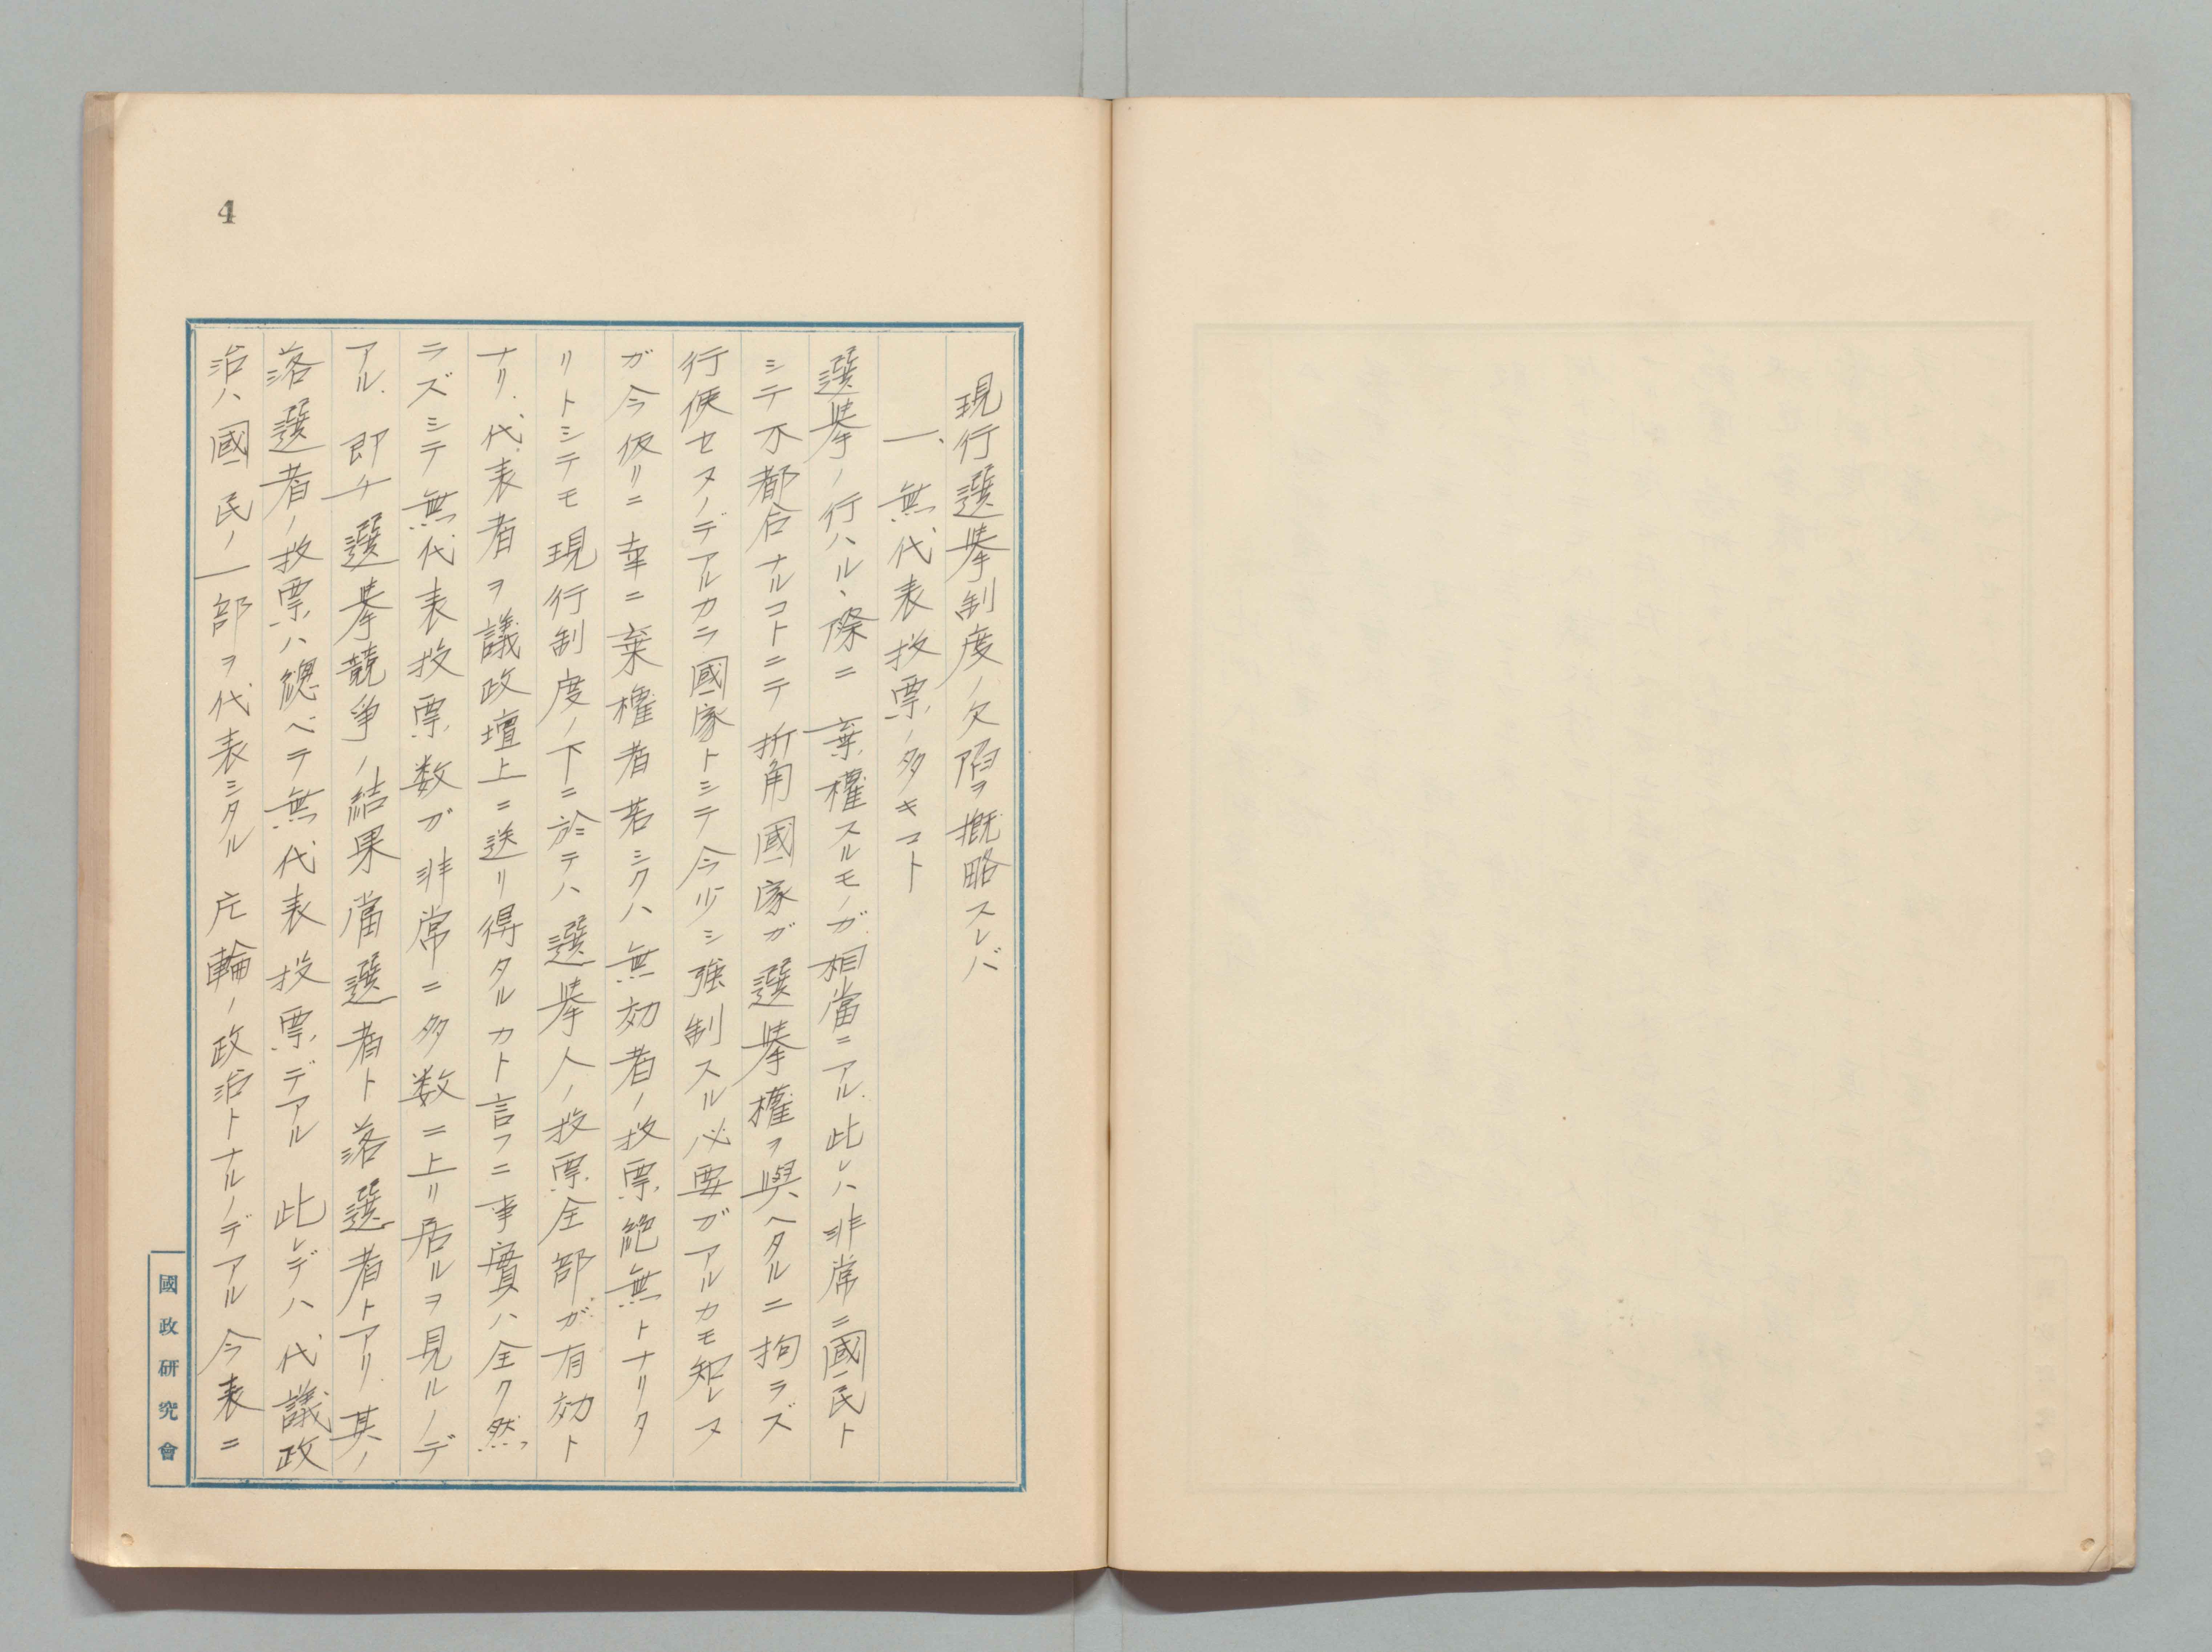 4
現行選挙制度ノ欠陥ヲ概略スレバ
一、無代表投票ノ多キコト
選挙ノ行ハルヽ際ニ棄權スルモノガ相當ニアル、此レハ非常ニ國民ト
シテ不都合ナルコトニテ折角國家ガ選挙權ヲ與ヘタルニ拘ラズ
行使セヌノデアルカラ國家トシテ今少シ強制スル必要ガアルカモ知レヌ
ガ今仮リニ幸ニ棄權者若シクハ無効者ノ投票絶無トナリタ
リトシテモ現行制度ノ下ニ於テハ選挙人ノ投票全部ガ有効ト
ナリ、代表者ヲ議政壇上ニ送リ得タルカト言フニ事實ハ全ク然
ラズシテ無代表投票数ガ非常ニ多数ニ上リ居ルヲ見ルノデ
アル、即チ選挙競争ノ結果當選者ト落選者トアリ、其ノ
落選者ノ投票ハ總ベテ無代表投票デアル 此レデハ代議政
治ハ國民ノ一部ヲ代表シタル片輪ノ政治トナルノデアル 今表ニ
國政研究會